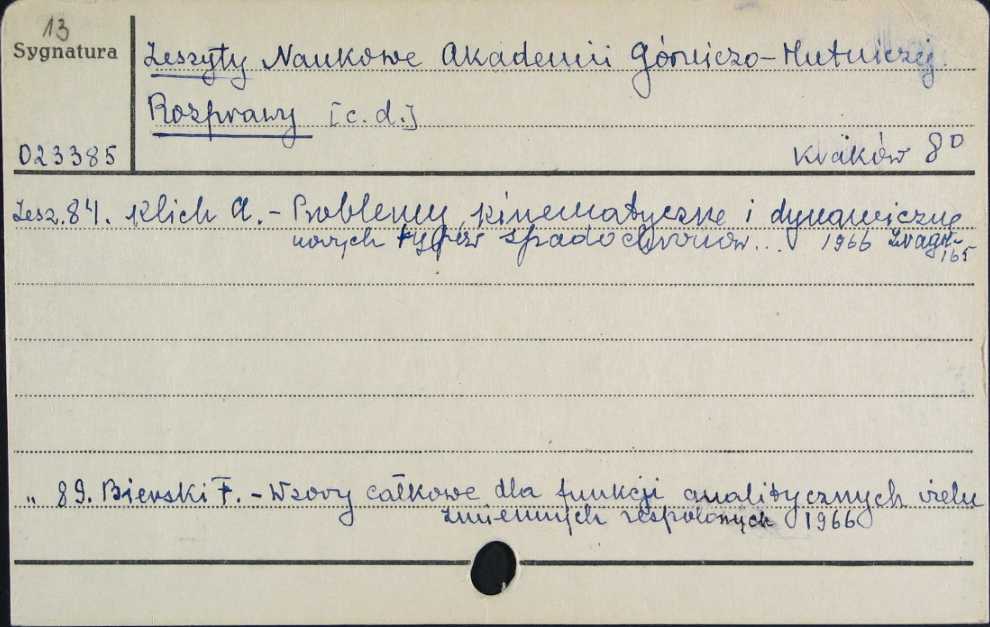 13
Sygnatura
Zeszyty Naukowe Akademii Górniczo-Hutniczej
Rozprawy [c.d.]
023385
Kraków 8°
Zesz. 84. Klich A. - Problemy kinematyczne i dynamiczne
nowych typów spadochronów... 1966
165
„ 89. Bierski F. - Wzory całkowe dla funkcji analitycznych wielu
zmiennych zespolonych 1966